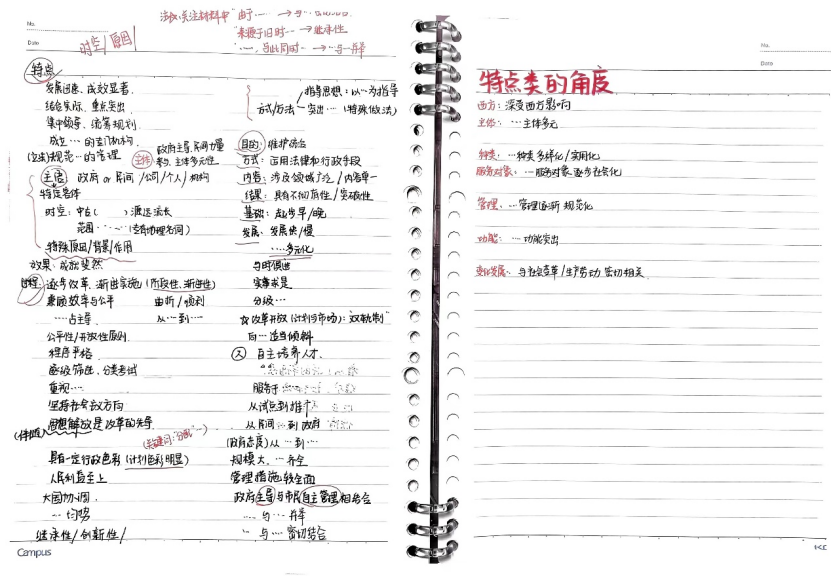 No.
Date
时空/原因
注意:关注材料中"由于……→与
"来源于旧时…→继承性
"…,与此同时…→与…并举
特点
发展迅速、成效显著.
结合实际、重点突出.
集中领导、统筹规划.
成立…的专门机构.
(立法)规范…的管理
主体
政府主导,民间力量
参与.主体多元性.
主信
政府 or 民间/公司/个人/机构
特定客体
时空:中古( )源远流长
范围……(查看地理名词)
特殊原因/背景/作用
效果:成就斐然
逐步改革、渐进实施(阶段性、渐进性)
兼顾效率与公平
曲折/顺利
……占主导.
从…到…
公平性/开放性原则.
程序严格.
逐级筛选、分类考试
重视…
坚持社会主义方向
思想解放是改革的先导.
(伴随)
(关键词:"分配"…)
具有一定行政色彩(计划色彩明显)
人民利益至上
大国协调.
…均势
继承性/创新性/
指导思想:以…为指导
方式/方法
突出…(特殊做法)
目的:维护统治
方式:运用法律和行政手段
内容:涉及领域广泛/内容单一
结果:具有不彻底性/突破性
基础:起步早/晚
发展:发展快/慢
……多元化
与时俱进
实事求是
分级…
☆改革开放(计划与市场):"双轨制"
向…适当倾斜
人
自主培养人才.
服务于
从试点到推广
从民间…到政府
(政府态度)从…到…
规模大、…齐全
管理措施较全面
政府主导与市民自主管理相结合
…与…并举
…与…密切结合
Campus
No.
Date
特点类的角度
西方:深受西方影响
主体:…主体多元
种类:…种类多样化/实用化
服务对象:…服务对象逐步社会化
管理:…管理逐渐规范化
功能:…功能突出
变化发展:与社会变革/生产劳动密切相关